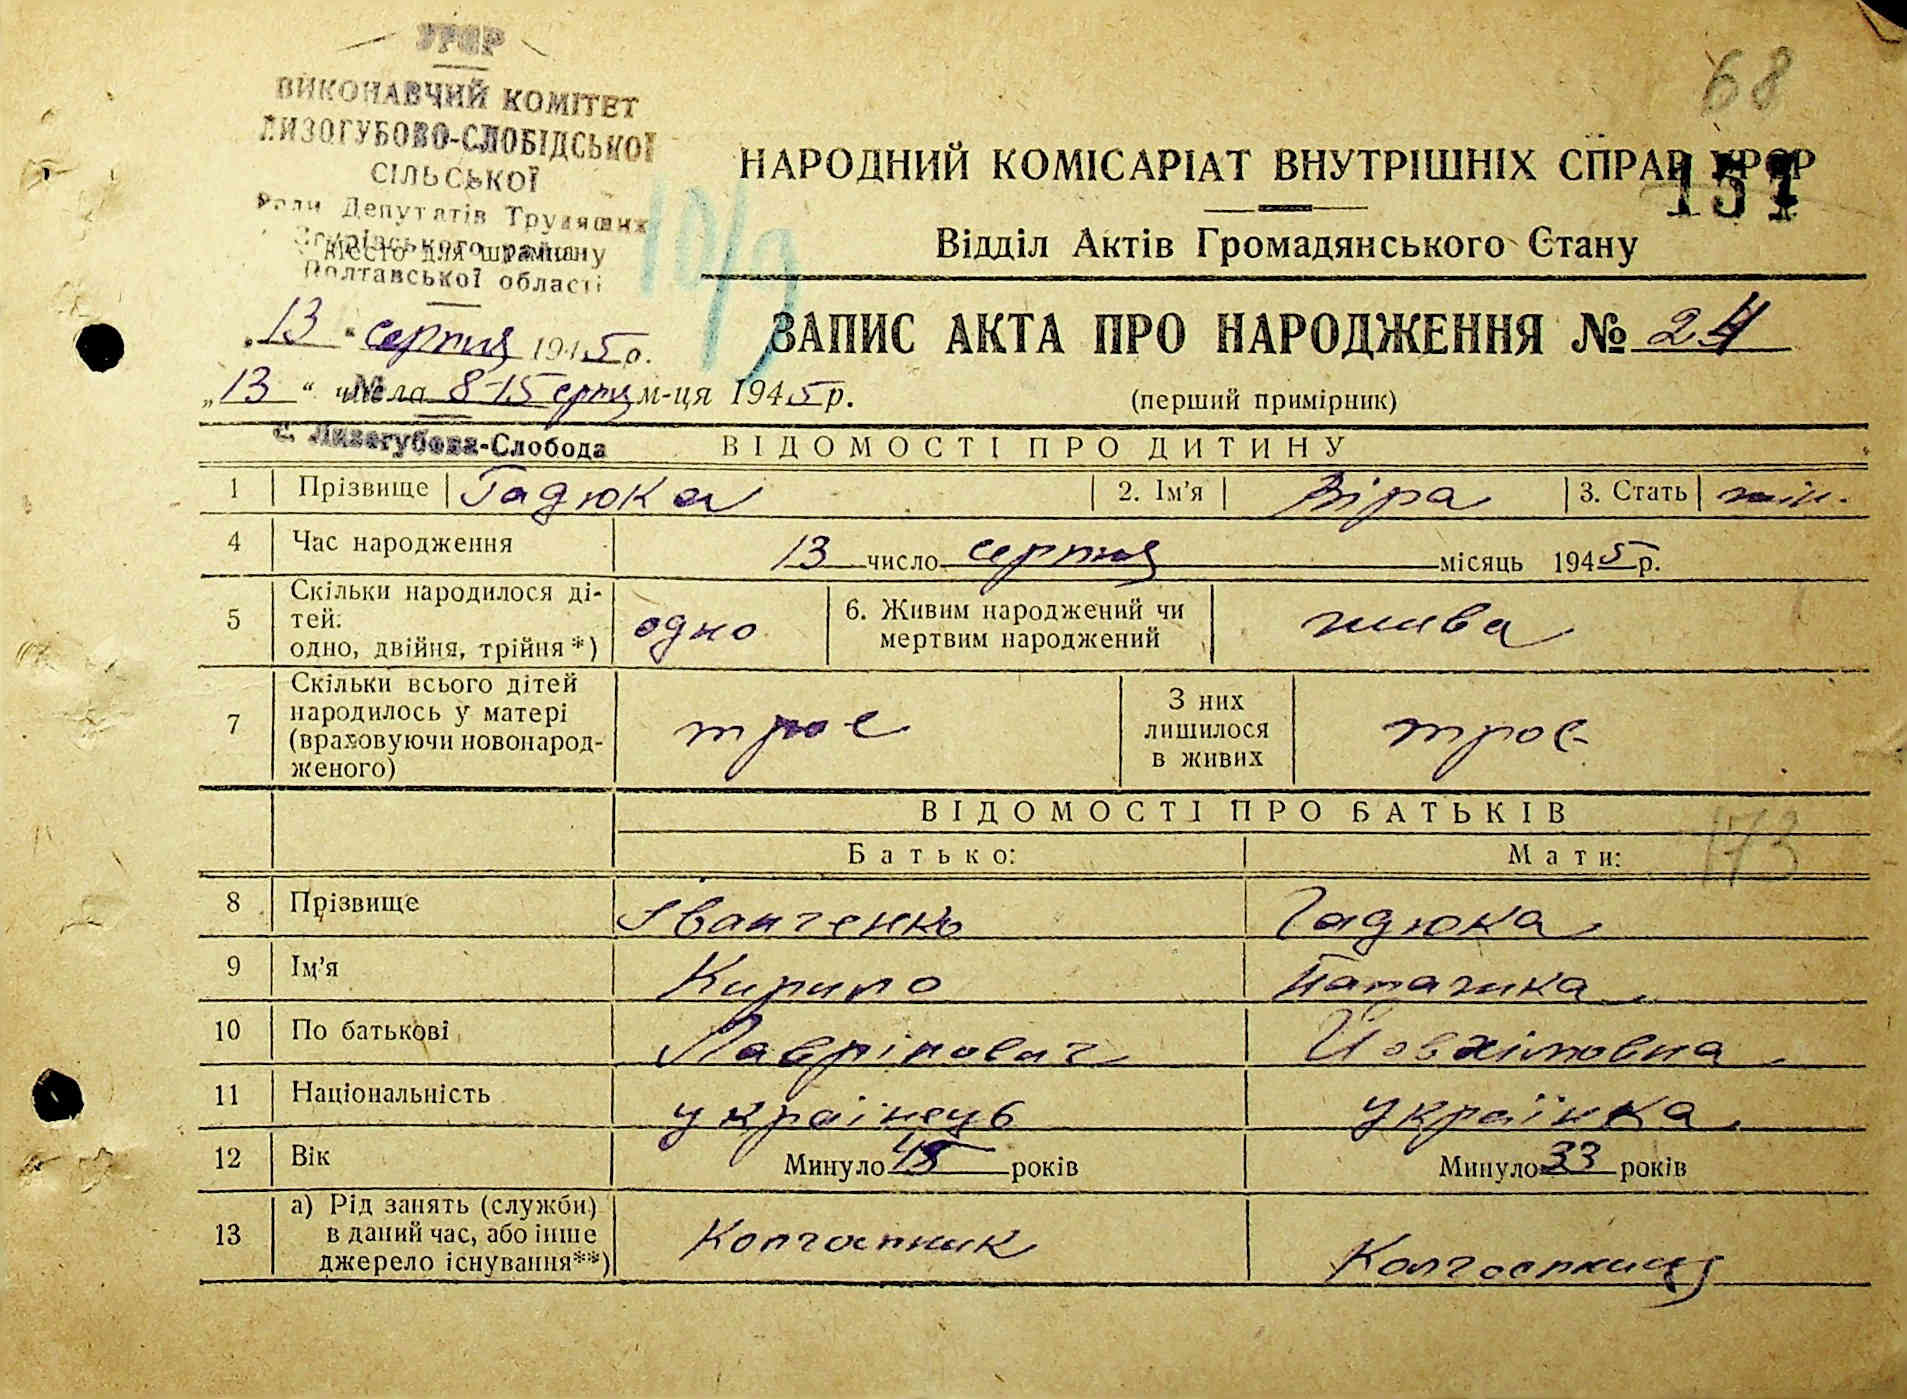 УРСР
ВИКОНАВЧИЙ КОМІТЕТ
ЛИЗОГУБОВО-СЛОБІДСЬКОЇ
СІЛЬСЬКОЇ
Ради Депутатів Трудящих
Згурівського району
Место для штампу
Полтавської області
68
10/9
НАРОДНИЙ КОМІСАРІАТ ВНУТРІШНІХ СПРАВ УРСР
157
Відділ Актів Громадянського Стану
„13" серпня 1945 р.
ЗАПИС АКТА ПРО НАРОДЖЕННЯ № 24
„13" числа 8-15 серпня м-ця 1945 р.
(перший примірник)
с. Лизогубова-Слобода
ВІДОМОСТІ ПРО ДИТИНУ
1 Прізвище Гадюка 2. Ім'я Віра 3. Стать жін.
4 Час народження 13 число серпня місяць 1945 р.
5 Скільки народилося дітей: одно, двійня, трійня *) одно 6. Живим народжений чи мертвим народжений жива
7 Скільки всього дітей народилось у матері (враховуючи новонародженого) троє З них лишилося в живих троє
ВІДОМОСТІ ПРО БАТЬКІВ
173
Батько: Мати:
8 Прізвище Іванченко Гадюка
9 Ім'я Кирило
10 По батькові Йовхімовна
11 Національність українець українка
12 Вік Минуло 45 років Минуло 33 років
13 а) Рід занять (служби) в даний час, або інше джерело існування**) Колгоспник Колгоспниця